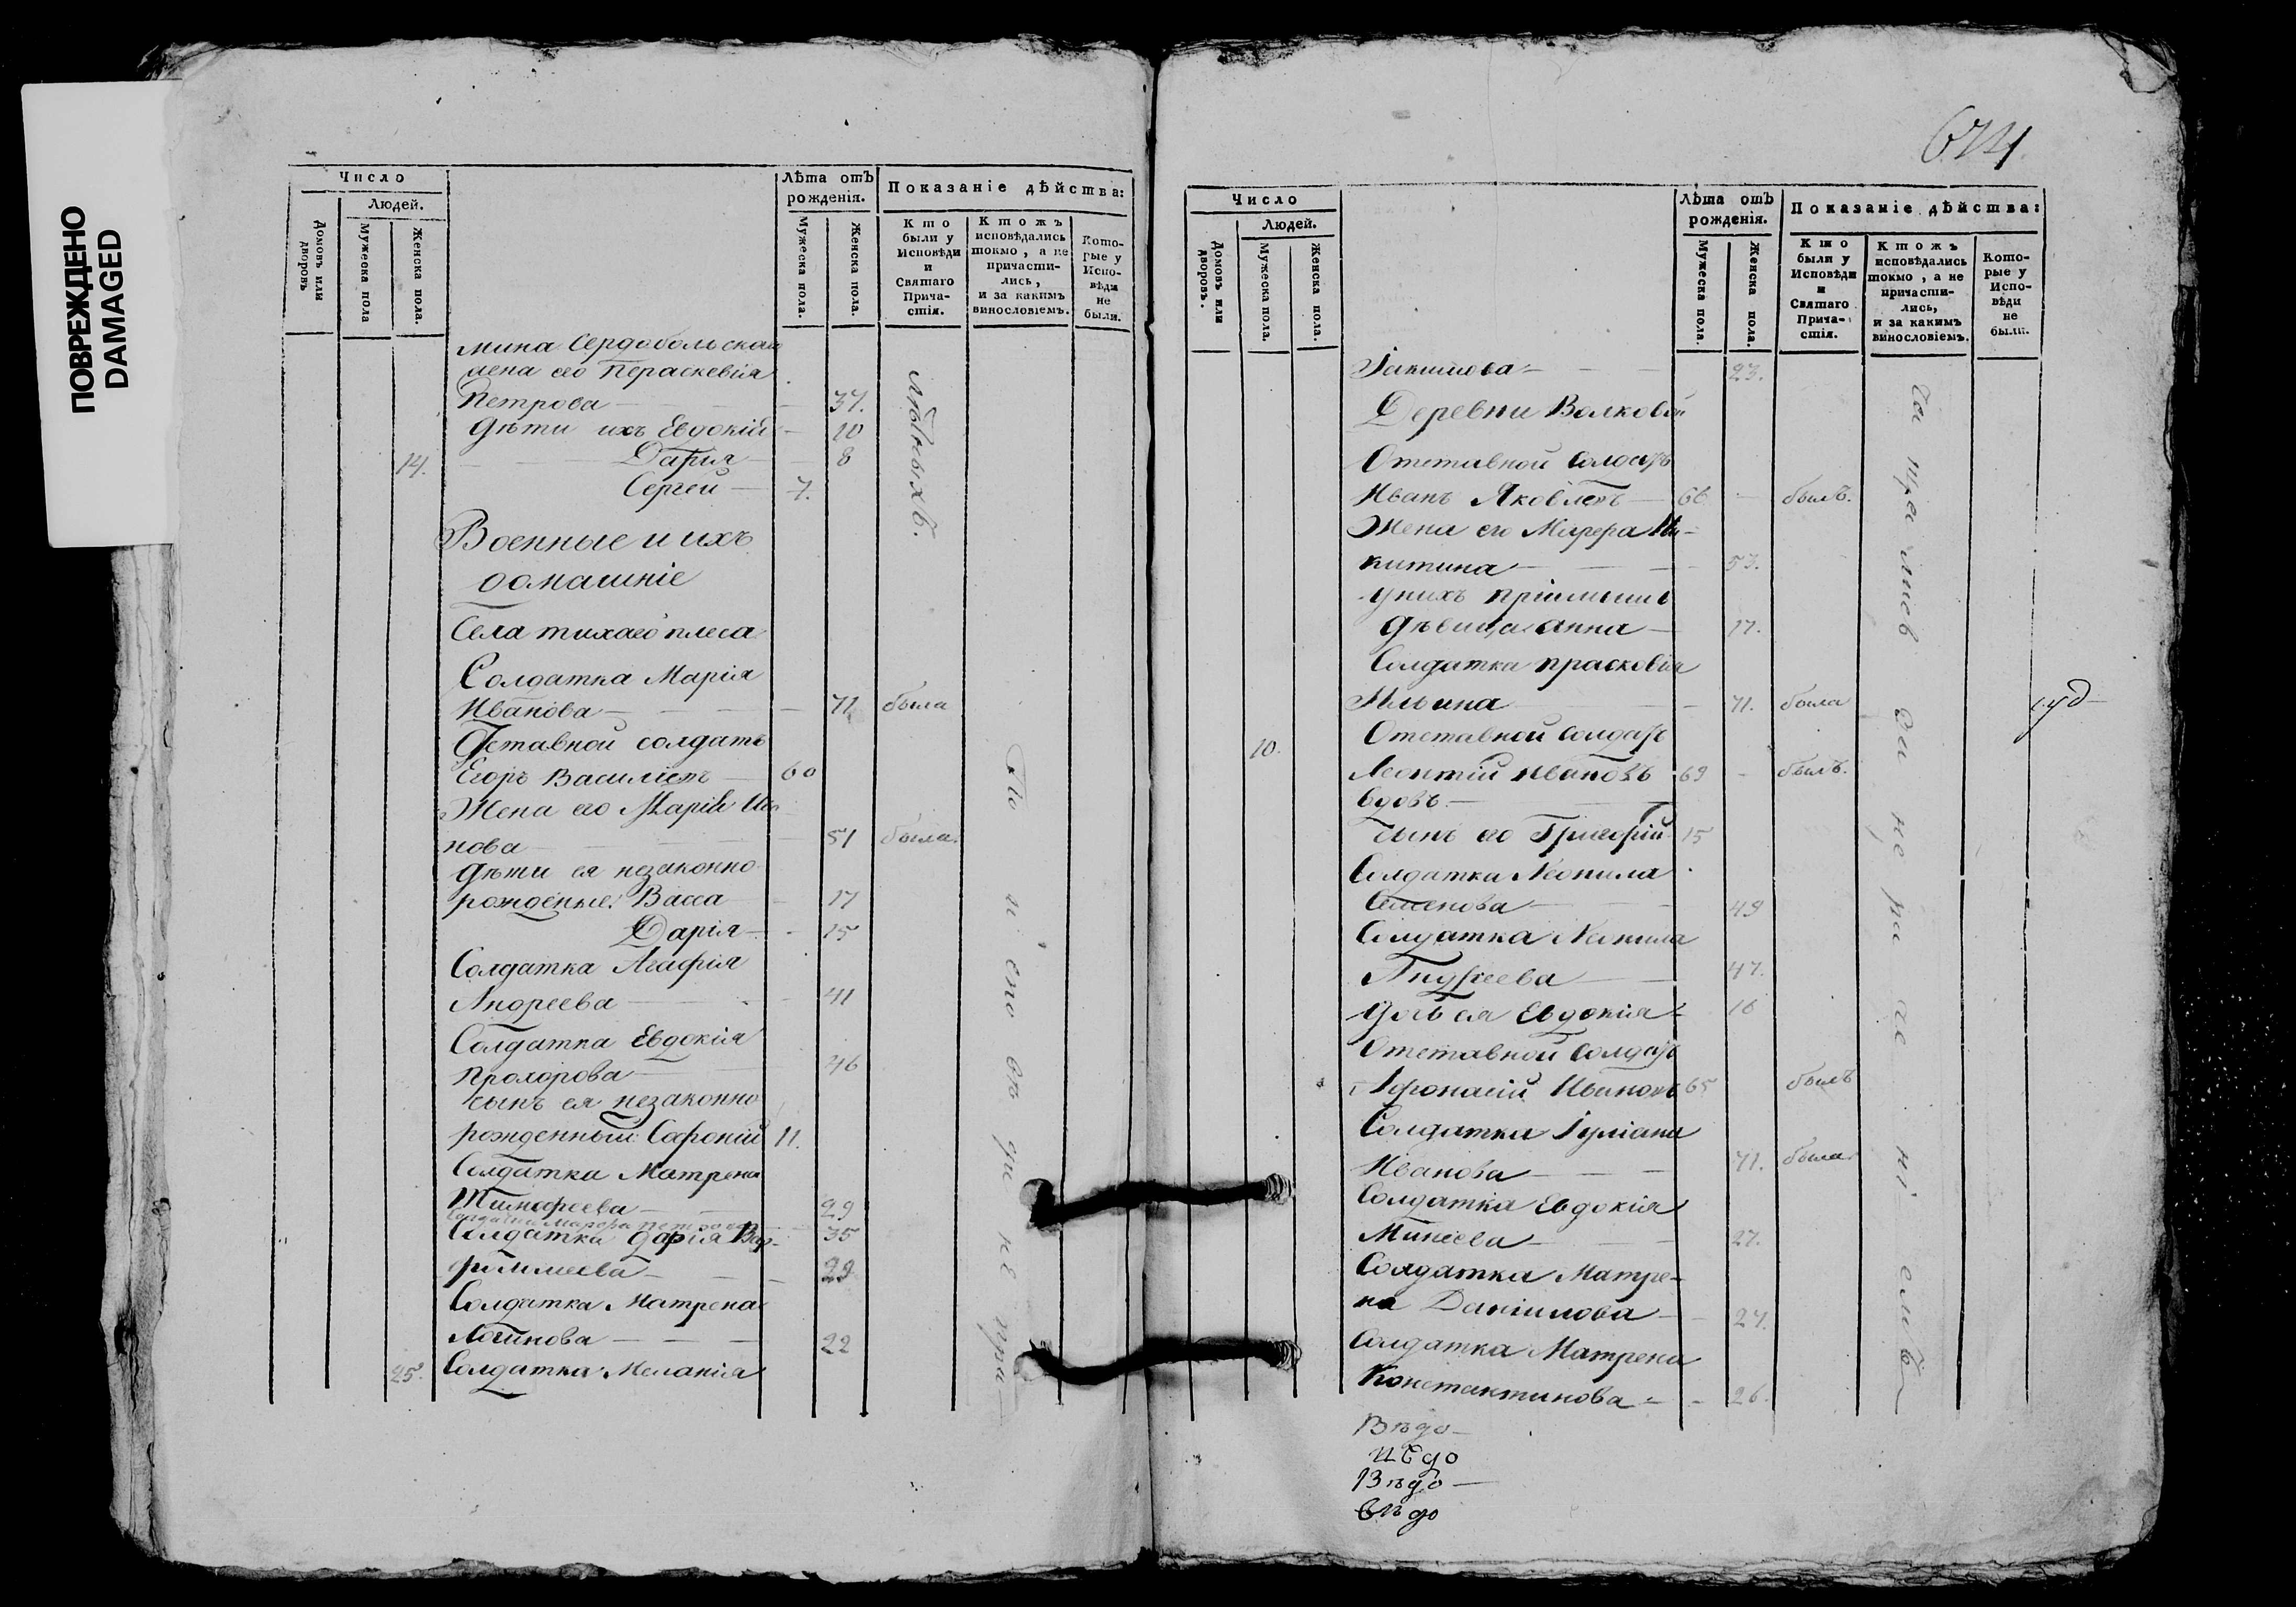 ПОВРЕЖДЕНО
DAMAGED
Число
Людей.
Домовъ или дворовъ
Мужеска пола
Женска пола.
Лѣта отъ рожденія.
Мужеска пола.
Женска пола.
Показаніе дѣйства:
Кто были у Исповѣди и Святаго Прича-стія.
Ктожъ исповѣдались токмо, а не причасти-лись, и за какимъ винословіемъ.
Кото-рые у Испо-вѣди не были.
мина Сердобольскаго
жена его Параскевія
Петрова 37.
Дѣти ихъ Евдокія 10
14. Дарія 8
Сергей 7.
Военные и ихъ
домашніе
Села тихаго плеса
Солдатка Марія
Иванова 71 была
Отставной солдатъ
Егоръ Василіевъ 60
Жена его Марія Ива
нова 51 была.
Дѣти ея незаконно
рожденные: Васса 17
Дарія 15
Солдатка Агафія
Андреева 41
Солдатка Евдокія
Прохорова 46
сынъ ея незаконно
рожденный: Софоній 11.
Солдатка Матрена
Тимофеева 29
Солдатка Марфа Петрова 35
Солдатка Дарія Вар-
фоломеева 29
Солдатка Матрена
Логинова 22
25. Солдатка Меланія
674
Число
Людей.
Домовъ или дворовъ.
Мужеска пола.
Женска пола.
Лѣта отъ рожденія.
Мужеска пола.
Женска пола.
Показаніе дѣйства:
Кто были у Исповѣди и Святаго Прича-стія.
Ктожъ исповѣдались токмо, а не причасти-лись, и за какимъ винословіемъ.
Кото-рые у Испо-вѣди не были.
Іакимова 23.
Деревни Волковой
Отставной Солдатъ
Иванъ Яковлевъ 66 былъ.
Жена его Марфа Ни-
китина 53.
у нихъ пріимышъ
дѣвица Анна 17.
Солдатка Прасковія
Ильина 71. была
Отставной Солдатъ
10. Леонтій Ивановъ 69 былъ.
вдовъ
сынъ его Григорій 15
Солдатка Неонила
Семенова 49
Солдатка Неонила
Андреева 47.
дочь ея Евдокія 16
Отставной Солдатъ
Афонасій Ивановъ 65 былъ
Солдатка Іуліана
Иванова 71. была
Солдатка Евдокія
Минеева 27.
Солдатка Матре-
на Даніилова 27.
Солдатка Матрена
Константинова 26.
Вѣдо